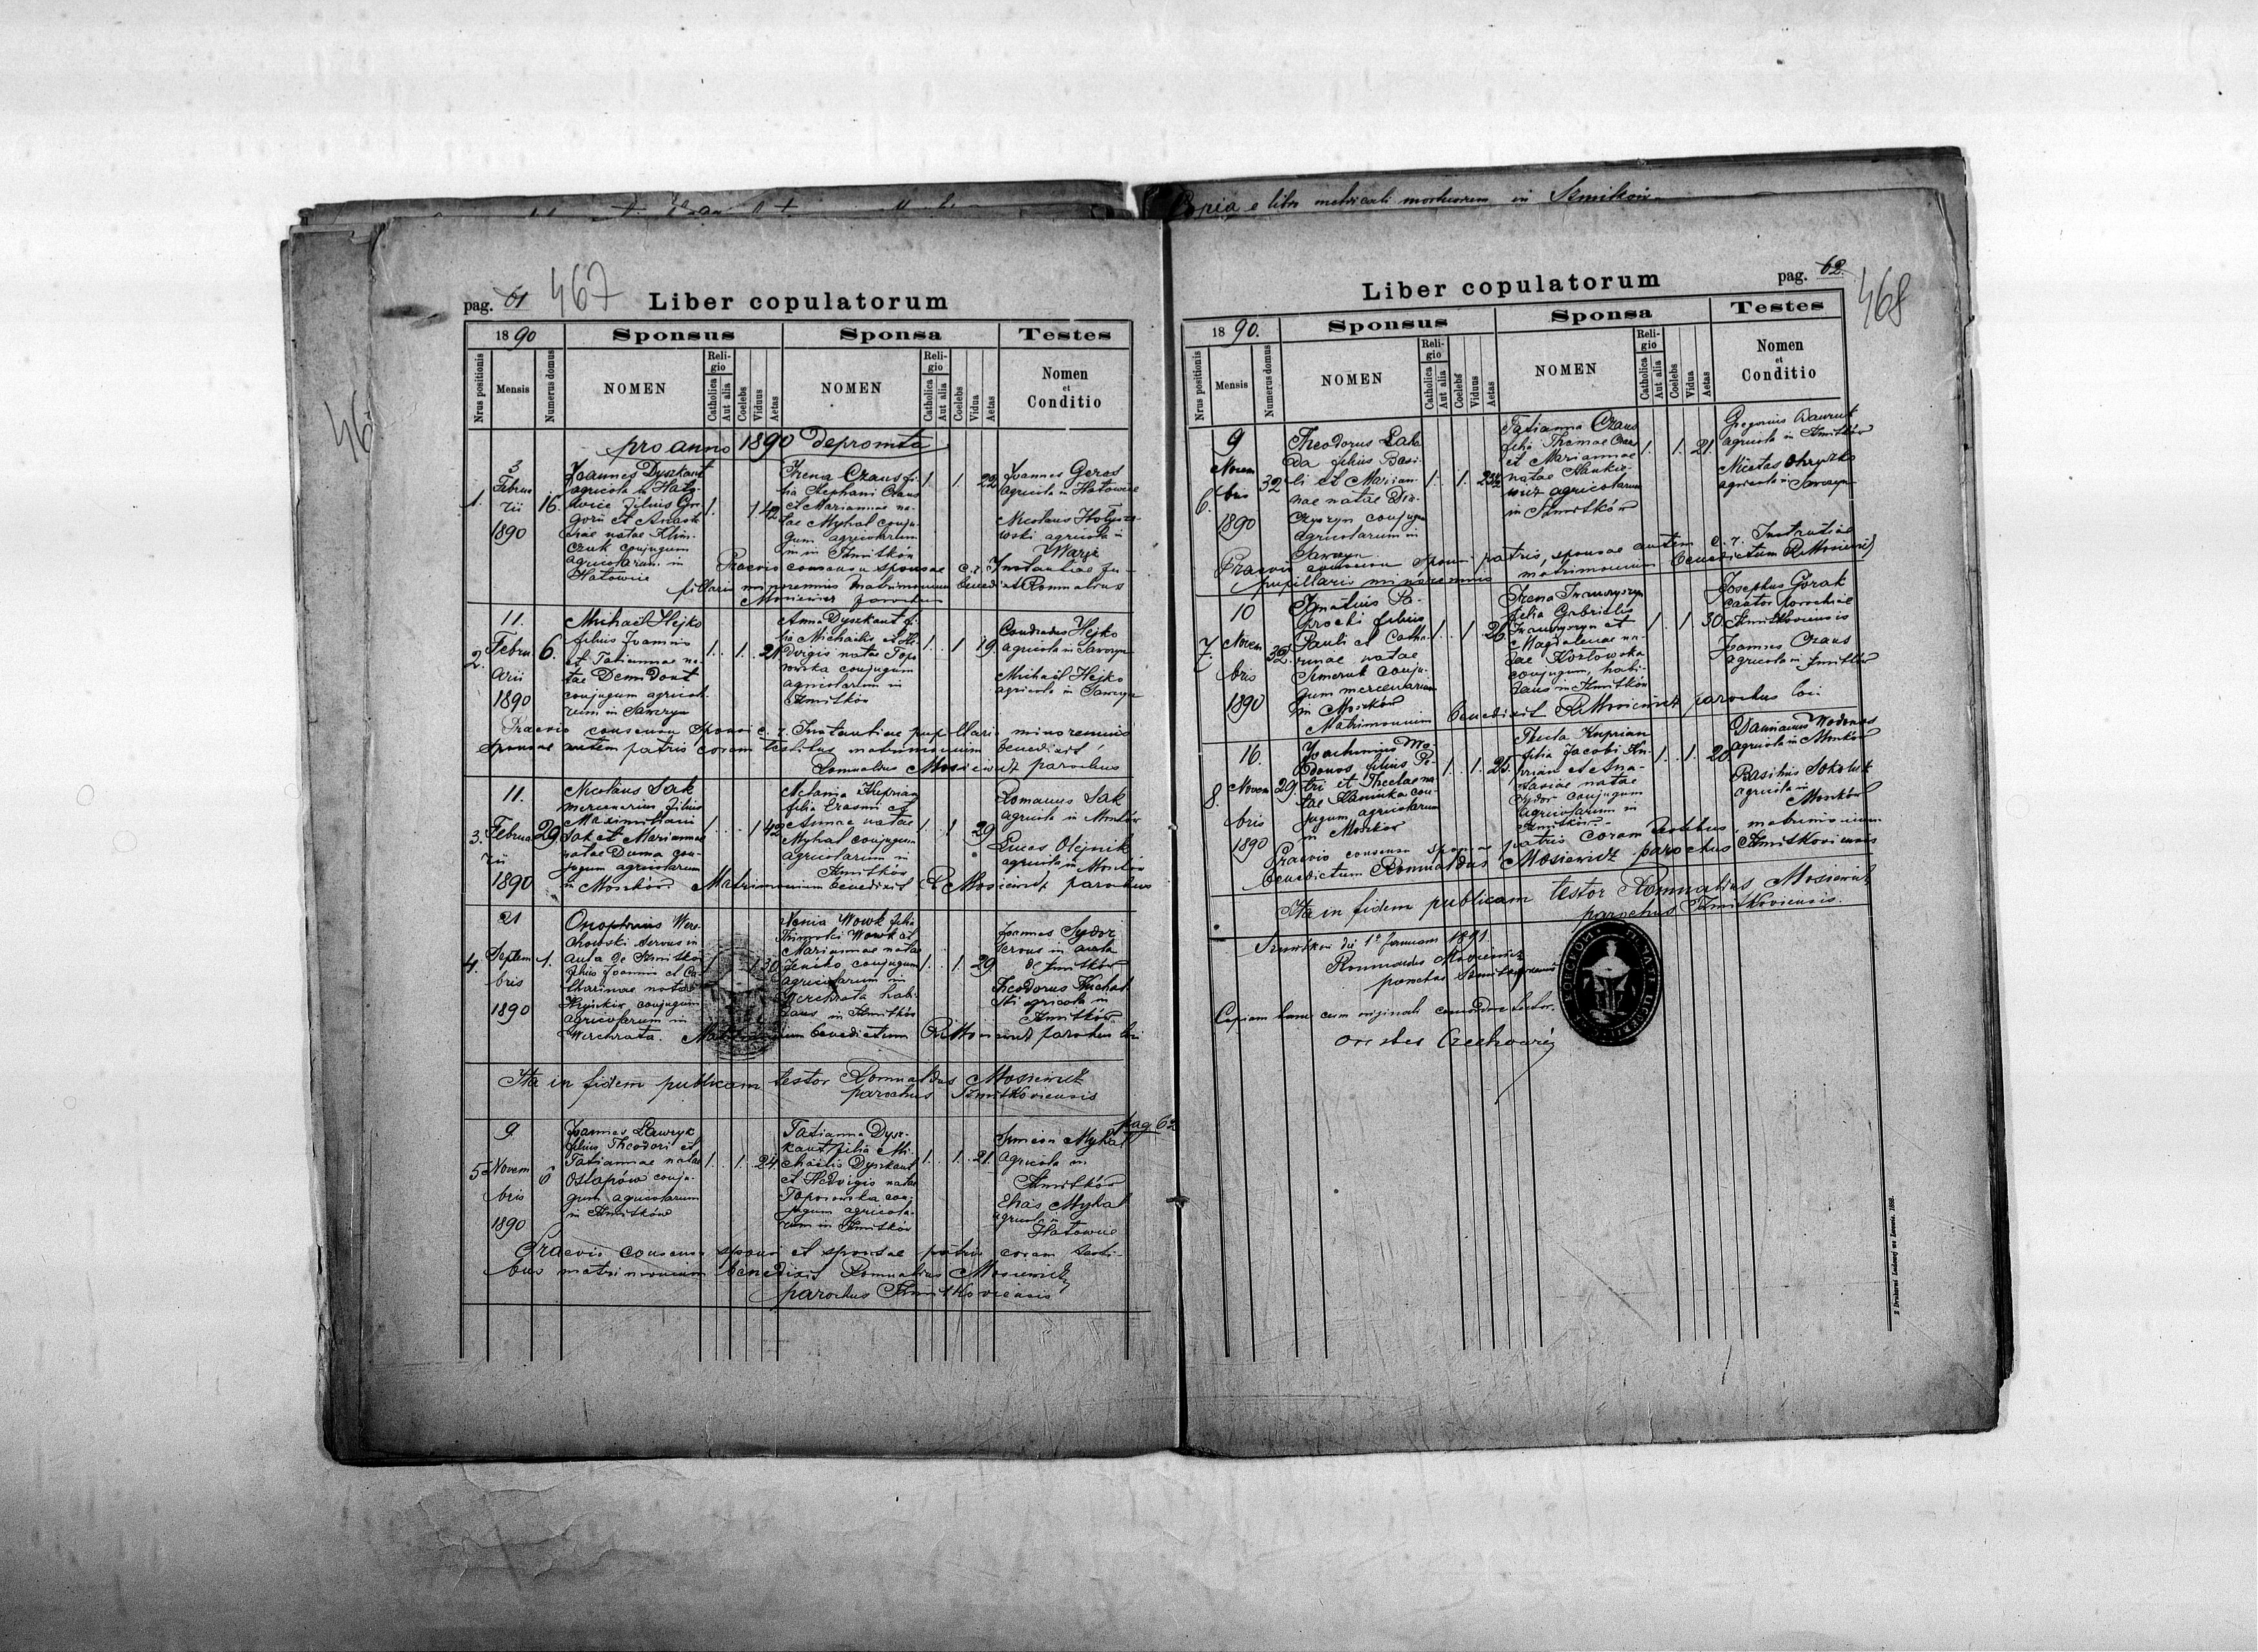 Copia e libro metricali mortuorum in Szmitków
pag. 61
467
Liber copulatorum
1890
Sponsus
Sponsa
Testes
Nrus positionis
Mensis
Numerus domus
NOMEN
Religio
Catholica
Aut alia
Coelebs
Viduus
Aetas
NOMEN
Religio
Catholica
Aut alia
Coelebs
Vidua
Aetas
Nomen
et
Conditio
pro anno 1890 depromta
1.
3
Februa
rii
1890
16.
Joannes Dyszkant
agricola in Hato
wice filius Gre
gorii et Anasta
siae natae Klim
czuk conjugum
agricolarum in
Hatowice
1. 1 42
Irena Czaus fi
lia Stephani Czaus
et Mariannae na
tae Myhal conju
gum agricolarum
in Szmitków
1. 1 22
Joannes Geros
agricola in Hatowice
Nicolaus
agricola in
Waręż
Praevio consensu sponsae c. r. Instantiae pu-
pillaris minorennis matrimonium bened ixit Romualdus
Mosiewicz parochus
2.
11.
Febru
arii
1890
6.
Michaël Hejko
filius Joannis
et Tatiannae na
tae Demidont
conjugum agricola
rum in Sawczyn
1. 1. 21
Anna Dyszkant fi
lia Michaëlis et He
dvigis natae Topo
rowska conjugum
agricolarum in
Szmitków
1. 1 19.
Condradus Hejko
agricola in Sawczyn
Michaël Hejko
agricola in Sawczyn
Praevio consensu sponsi c. r. Instantiae pupillaris minorennis
sponsae autem patris coram testibus matrimonium benedixit
Romualdus Mosiewicz parochus
3.
11.
Februa
rii
1890
29.
Nicolaus Sak
mercenarius filius
Maximiliani
Sak et Mariannae
natae Duma con
jugum agricolarum
in Moszków
1. 1 42
Melania Kuprian
filia Erasmi et
Annae natae
Myhal conjugum
agricolarum in
Szmitków
1. 1 29
Romanus Sak
agricola in Moszków
Lucas Olejnik
agricola in Moszków
Matrimonium benedixit R Mosiewicz parochus
4.
21
Septem
bris
1890
1.
Onophrius Wer
chowski servus in
aula de Szmitków
filius Joannis et Ca
tharinae natae
conjugum
agricolarum in
Werchrata.
1. 1. 30
Xenia Wowk filia
Thimothi Wowk et
Mariannae natae
conjugum
agricolarum in
Werchrata habi
tans in Szmitków
1. 1. 29.
Joannes Sydor
servus in aula
de Szmitków
Theodorus
agricola in
Szmitków
Matrimonium benedictum R Mosiewicz parochus loci
Ita in fidem publicam testor Romualdus Mosiewicz
parochus Szmitkoviensis
pag 62
5
9
Novem
bris
1890
6
Joannes Ławryk
filius Theodori et
Tatiannae natae
Ostapów conju-
gum agricolarum
in Szmitków
1. 1. 24
Tatianna Dysz-
kant filia Mi
chaëlis Dyszkant
et Hedvigis natae
Toporowska con-
jugum agricola
rum in Szmitków
1. 1. 21.
Simeon Myhal
agricola in
Szmitków
Elias Myhal
agricola in
Hatowice
Praevio consensu sponsi et sponsae patris coram testi-
bus matrimonium benedixit Romualdus Mosiewicz
parochus Szmitkoviensis
Liber copulatorum
pag. 62.
468
1890.
Sponsus
Sponsa
Testes
Nrus positionis
Mensis
Numerus domus
NOMEN
Religio
Catholica
Aut alia
Coelebs
Viduus
Aetas
NOMEN
Religio
Catholica
Aut alia
Coelebs
Vidua
Aetas
Nomen
et
Conditio
6.
9
Novem
bris
1890
32
Theodorus
filius Basi
li et Marian
nae natae
conjugum
agricolarum in
Sawczyn
1. 1.
Tatianna Czaus
filia Thomae Czaus
et Mariannae
natae
agricolarum
in Szmitków
1. 1. 21.
Gregorius
agricola in Szmitków
Nicetas
agricola in Sawczyn
Praevio consensu sponsi patris, sponsae autem c. r. Instantiae
pupillaris minorennis matrimonium benedictum R Mosiewicz
7.
10
Novem
bris
1890
32.
Ignatius Pa-
procki filius
Pauli et Catha
rinae natae
Semeruk conju-
gum mercenariorum
in Moszków
1. 1 26
Irena
filia Gabrielis
et
Magdalenae na
tae Kozłowska
conjugum, habi
tans in Szmitków
1. 1 30
Josephus Gorak
cantor parochiae
Szmitkoviensis
Joannes Czaus
agricola in Szmitków
Matrimonium benedixit R Mosiewicz parochus loci
8.
16.
Novem
bris
1890
29.
Joachimus Wo
donos, filius Pe
tri et Theclae na
tae Hanuka con
jugum agricolarum
in Moszków
1. 1. 25.
Thecla Kuprian
filia Jacobi Ku
prian et Ana-
stasiae natae
Sydor conjugum
agricolarum in
Szmitków
1. 1. 20.
Damianus Wodonos
agricola in Moszków
Basilius Sokoluk
agricola in
Moszków
Praevio consensu sponsae patris coram testibus matrimonium
benedictum Romualdus Mosiewicz parochus Szmitkoviensis
Ita in fidem publicam testor Romualdus Mosiewicz
parochus Szmitkoviensis.
Szmitków die 1º Januarii 1891
Romualdus Mosiewicz
parochus Szmitkoviensis
Copiam hanc cum originali concordare testor.
Orestes Czechowicz
Z Drukarni Ludowej we Lwowie. 1886.